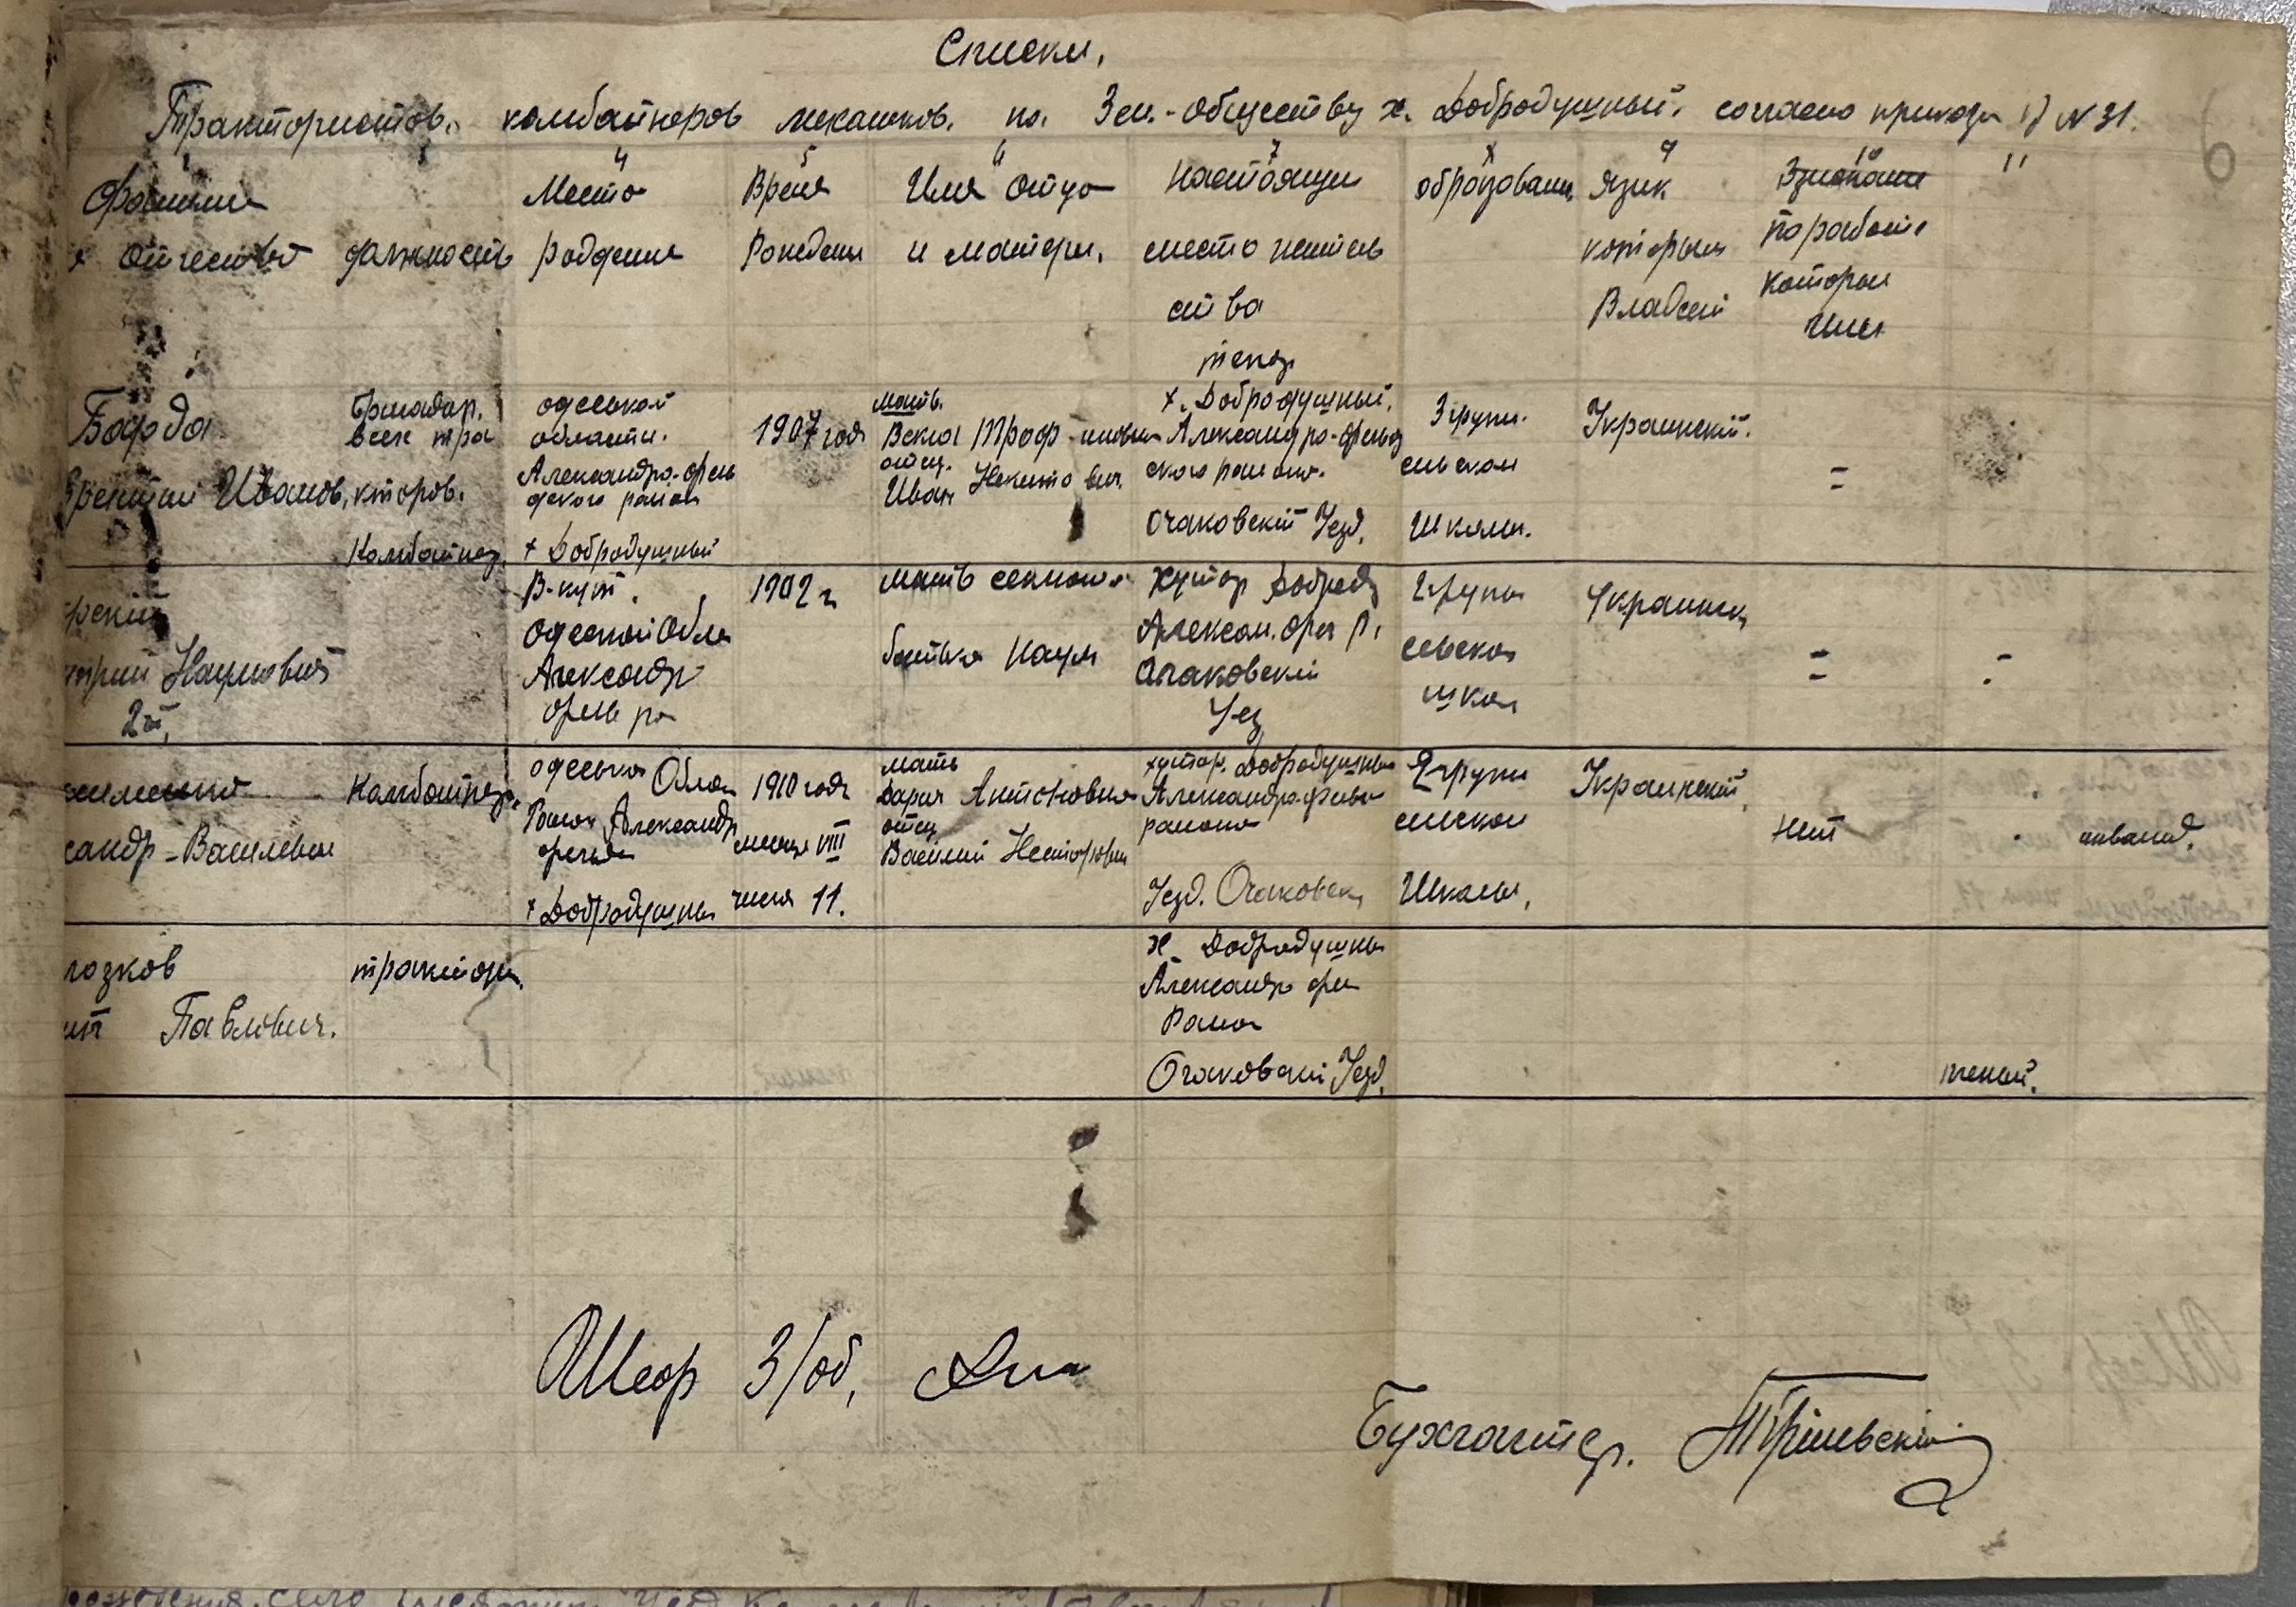 Списки.
Трактористов. комбайнеров механиков. по. Зем.-обществу х. Добродушный. согласно приказа 17 N 31.
4 5 6 7 8 9 10 11
Фамилие
и отчество
должность
Место
роддения
Время
Рождения
Имя отца
и матери.
настоящи
место житель
ства
образовани.
язик
которым
Владеет
поработе
которои
Баюда
Иванов.
бригадир.
всех тра
кторов.
Комбайнер.
одеської
области.
Александро-фель
дского район
х Добродушный
1907 год
мать.
Векла Трофимовна
отец.
Иван Некитович.
х. Добродушный.
Александро-фельд
ского раиона.
Очаковский Уезд.
3 групи.
сельской
Школы.
Украинский.
=
Наумович
2й.
В-кут.
Одеской Обла
Александр
фель ра
1902 г
мать
батько Наум
Хутор Доброд
Алексан. фел р.
Очаковский
Уез
2 групы
сельско
школ
Украинск
=
-
сандр-Василевич
Комбайнер.
одеська Облас
Раион Александр
фельд
х Добродушны
1910 году
месяц VIII
числа 11.
мать
Дария Антоновна
отец
Василий Несторович
хутор. Добродушны
Александро-фельд
раиона
Уезд. Очаковск
2 групи
сельскои
Школы.
Украинский
Нет
инвалид.
лозков
Павлович.
трактори.
х. Добродушны
Александр фел
Раион
Очаковский Уезд.
Шеф З/об.
Бухгалтер.